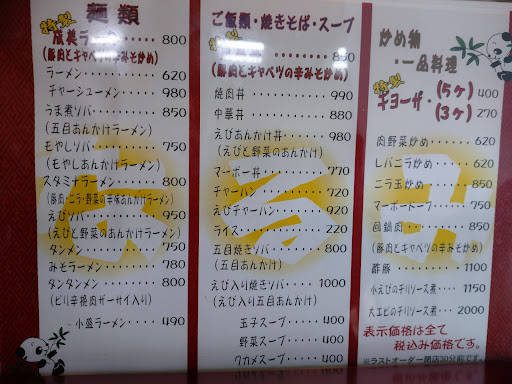 麺類
特製
成美ラーメン・・・ 800
(豚肉とキャベツの辛みそ炒め)
ラーメン・・・・・・ 620
チャーシューメン・・・ 980
うま煮ソバ・・・・・ 850
(五目あんかけラーメン)
もやしソバ・・・・・ 750
(もやしあんかけラーメン)
スタミナラーメン・・・・ 800
(豚肉・ニラ・野菜の辛味あんかけラーメン)
えびソバ・・・・・・ 950
(えびと野菜のあんかけラーメン)
タンメン・・・・・・ 750
みそラーメン・・・・・ 780
タンタンメン・・・・・ 800
(ピリ辛挽肉ザーサイ入り)
小盛ラーメン・・・・ 490
ご飯類・焼きそば・スープ
特製
850
(豚肉とキャベツの辛みそ炒め)
焼肉丼・・・・・・・ 990
中華丼・・・・・・・ 880
えびあんかけ丼・・・・ 980
(えびと野菜のあんかけ)
マーボー丼・・・・・ 770
チャーハン・・・・・ 720
えびチャーハン・・・・ 920
ライス・・・・・・・ 220
五目焼きソバ・・・・・ 800
(五目あんかけ)
えび入り焼きソバ・・・ 1000
(えび入り五目あんかけ)
玉子スープ・・・・・ 400
野菜スープ・・・・・ 400
ワカメスープ・・・・ 400
炒め物
・一品料理
特製
ギョーザ・(5ケ) 400
(3ケ) 270
肉野菜炒め・・・・・ 620
レバニラ炒め・・・・ 620
ニラ玉炒め・・・・・ 850
マーボードーフ・・・・ 650
回鍋肉・・・・・・・ 650
(豚肉とキャベツの辛みそ炒め)
酢豚・・・・・・・ 1100
小えびのチリソース煮・・・ 1150
大エビのチリソース煮・・・ 2000
表示価格は全て
税込み価格です。
※ラストオーダー閉店30分前です。